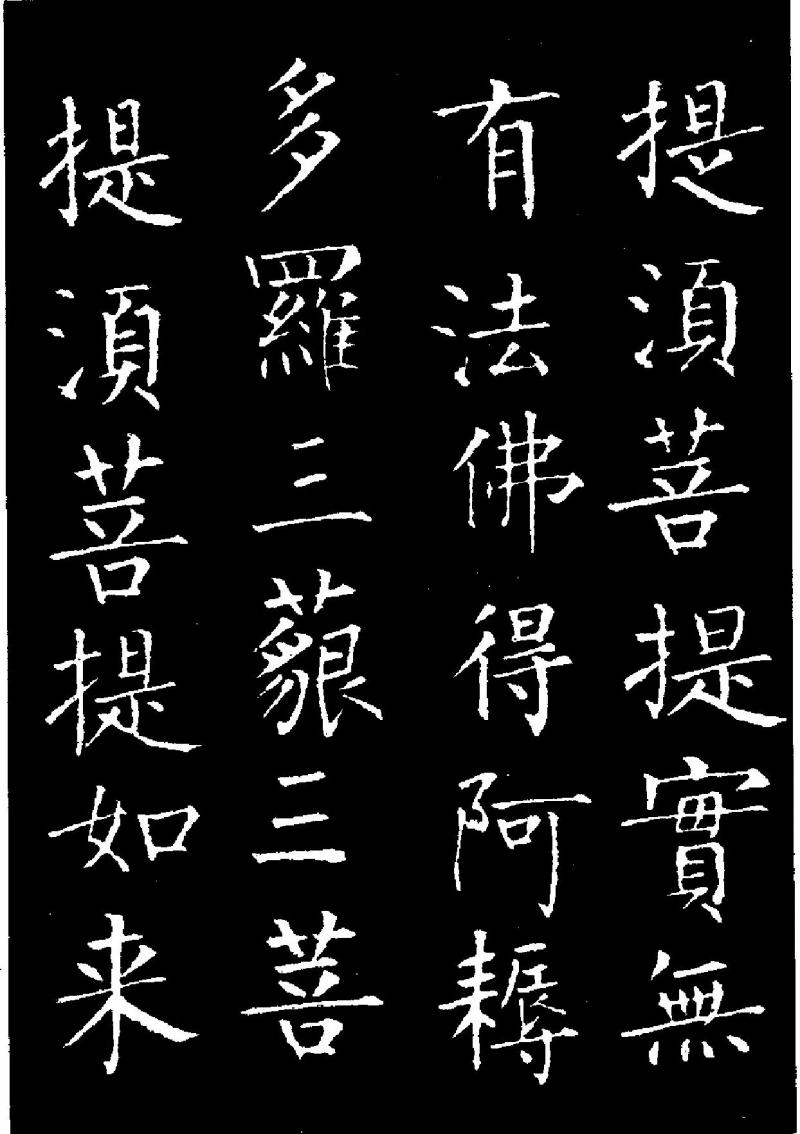 提須菩提實無
有法佛得阿耨
多羅三藐三菩
提須菩提如来